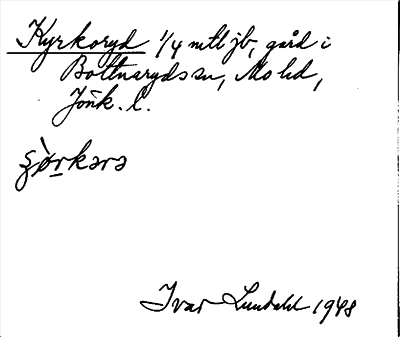 Kyrkoryd 1/4 mtl jb, gård i
Bottnaryds sn, Mo hd,
Jönk. l.
Ivar Lundahl 1948